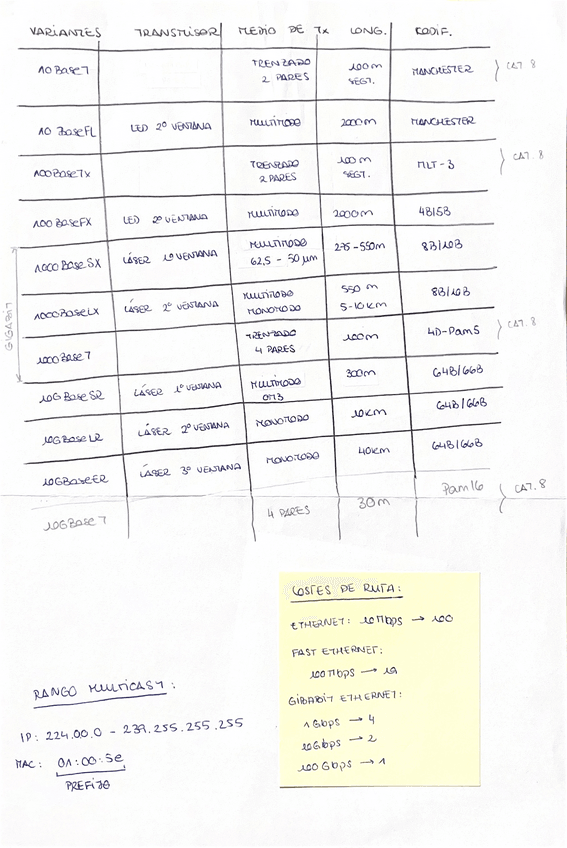 VARIANTES TRANSMISOR MEDIO DE Tx LONG. CODIF.
10 Base T TRENZADO 2 PARES 100m SEGT. MANCHESTER } CAT. 8
10 Base FL LED 2º VENTANA MULTIMODO 2000m MANCHESTER
100 Base Tx TRENZADO 2 PARES 100m SEGT. MLT-3 } CAT. 8
100 Base FX LED 2º VENTANA MULTIMODO 2000m 4B/5B
GIGABIT
1000 Base SX LÁSER 1º VENTANA MULTIMODO 62,5 - 50 µm 275-550m 8B/10B
1000 Base LX LÁSER 2º VENTANA MULTIMODO MONOMODO 550 m 5-10km 8B/10B
1000 Base T TRENZADO 4 PARES 100m 4D-Pam5 } CAT. 8
10G Base SR LÁSER 1º VENTANA MULTIMODO OM3 300m 64B/66B
10G Base LR LÁSER 2º VENTANA MONOMODO 10km 64B/66B
10GBaseER LÁSER 3º VENTANA MONOMODO 40km 64B/66B
10G Base T 4 PARES 30m Pam16 } CAT. 8
COSTES DE RUTA:
ETHERNET: 10Mbps → 100
FAST ETHERNET:
100Mbps → 19
GIGABIT ETHERNET:
1 Gbps → 4
10Gbps → 2
100 Gbps → 1
RANGO MULTICAST:
IP: 224.0.0.0 - 239.255.255.255
MAC: 01:00:5e
PREFIJO